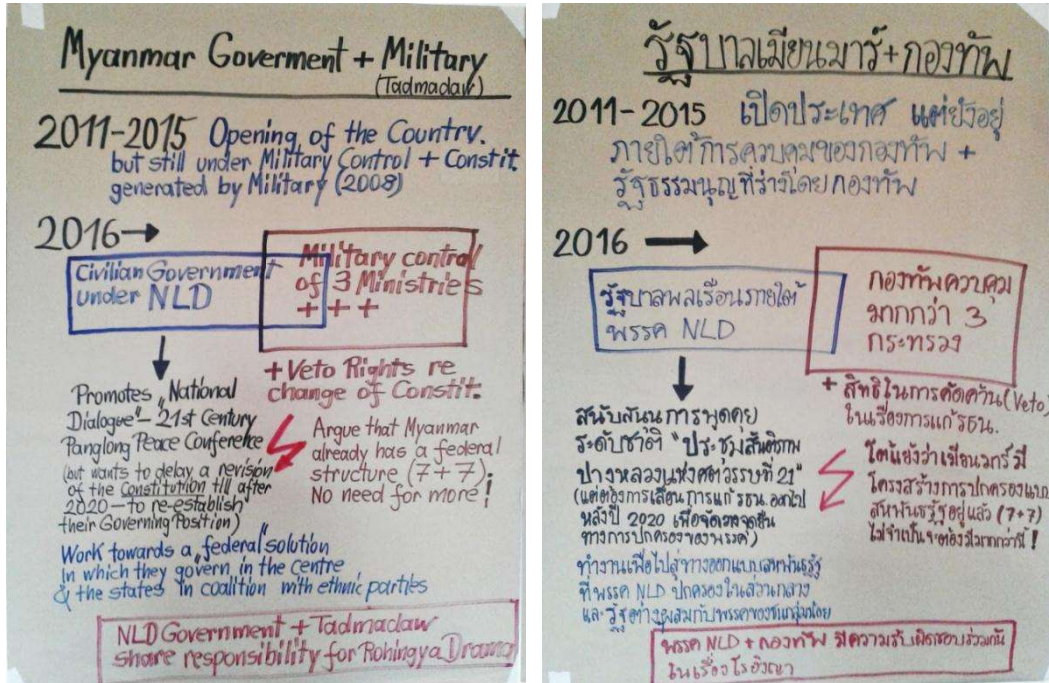 Myanmar Goverment + Military
(Tadmadaw)
2011-2015 Opening of the Country.
but still under Military Control + Constit.
generated by Military (2008)
2016→
Civilian Government
under NLD
Military control
of 3 Ministries
+ + +
+ Veto Rights re
change of Constit.
Promotes „National
Dialogue" – 21st Century
Panglong Peace Conference
(but wants to delay a revision
of the Constitution till after
2020 – to re-establish
their Governing Position)
Argue that Myanmar
already has a federal
structure (7+7).
No need for more!
Work towards a „federal" solution
in which they govern in the centre
& the states in coalition with ethnic parties
NLD Government + Tadmadaw
share responsibility for Rohingya Drama
รัฐบาลเมียนมาร์+กองทัพ
2011-2015 เปิดประเทศ แต่ยังอยู่
ภายใต้การควบคุมของกองทัพ +
รัฐธรรมนูญที่ร่างโดยกองทัพ
2016 →
รัฐบาลพลเรือนภายใต้
พรรค NLD
กองทัพควบคุม
มากกว่า 3
กระทรวง
+ สิทธิในการคัดค้าน(Veto)
ในเรื่องการแก้ รธน.
สนับสนุนการพูดคุย
ระดับชาติ "ประชุมสันติภาพ
ปางหลวงแห่งศตวรรษที่ 21"
(แต่ต้องการเลื่อนการแก้ รธน. ออกไป
หลังปี 2020 เพื่อจัดวางจุดยืน
ทางการปกครองของพรรค)
โต้แย้งว่าเมียนมาร์มี
โครงสร้างการปกครองแบบ
สหพันธรัฐอยู่แล้ว (7+7)
ไม่จำเป็นจะต้องมีมากกว่านี้!
ทำงานเพื่อไปสู่ทางออกแบบสหพันธรัฐ
ที่พรรค NLD ปกครองในส่วนกลาง
และรัฐต่างๆผสมกับพรรคของชนกลุ่มน้อย
พรรค NLD + กองทัพ มีความรับผิดชอบร่วมกัน
ในเรื่องโรฮิงญา